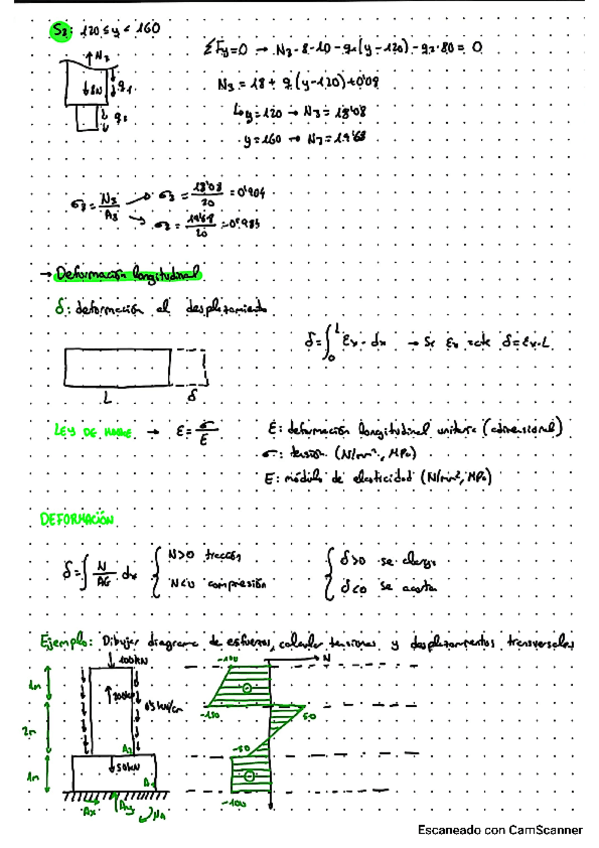 S3: 120 ≤ y < 160
ΣFy=0 → N3-8-10-q1(y-120)-q2·80=0
N3
8N
q1
q2
N3 = 18 + q1(y-120)+0'08
↳ y=120 → N3=18'08
y=160 → N3=19'68
σ3 = N3/A3
σ3 = 18'08/20 = 0'904
σ3 = 19'68/20 = 0'985
→ Deformación longitudinal
δ: deformación al desplazamiento
δ=∫₀ᴸ εx · dx → Si εx = cte δ=εx·L
L δ
LEY DE HOOKE → ε = σ/E
ε: deformación longitudinal unitaria (adimensional)
σ: tensión (N/mm², MPa)
E: módulo de elasticidad (N/mm², MPa)
DEFORMACIÓN
δ=∫ N/AE dx
N>0 tracción
N<0 compresión
δ>0 se alarga
δ<0 se acorta
Ejemplo: Dibujar diagrama de esfuerzos, calcular tensiones y desplazamientos transversales
100kN
-100
N
1m
200kN
0'5 kN/cm
-150
50
2m
-50
A2
50kN
1m
A1
-100
Ax
Ay
MA
Escaneado con CamScanner